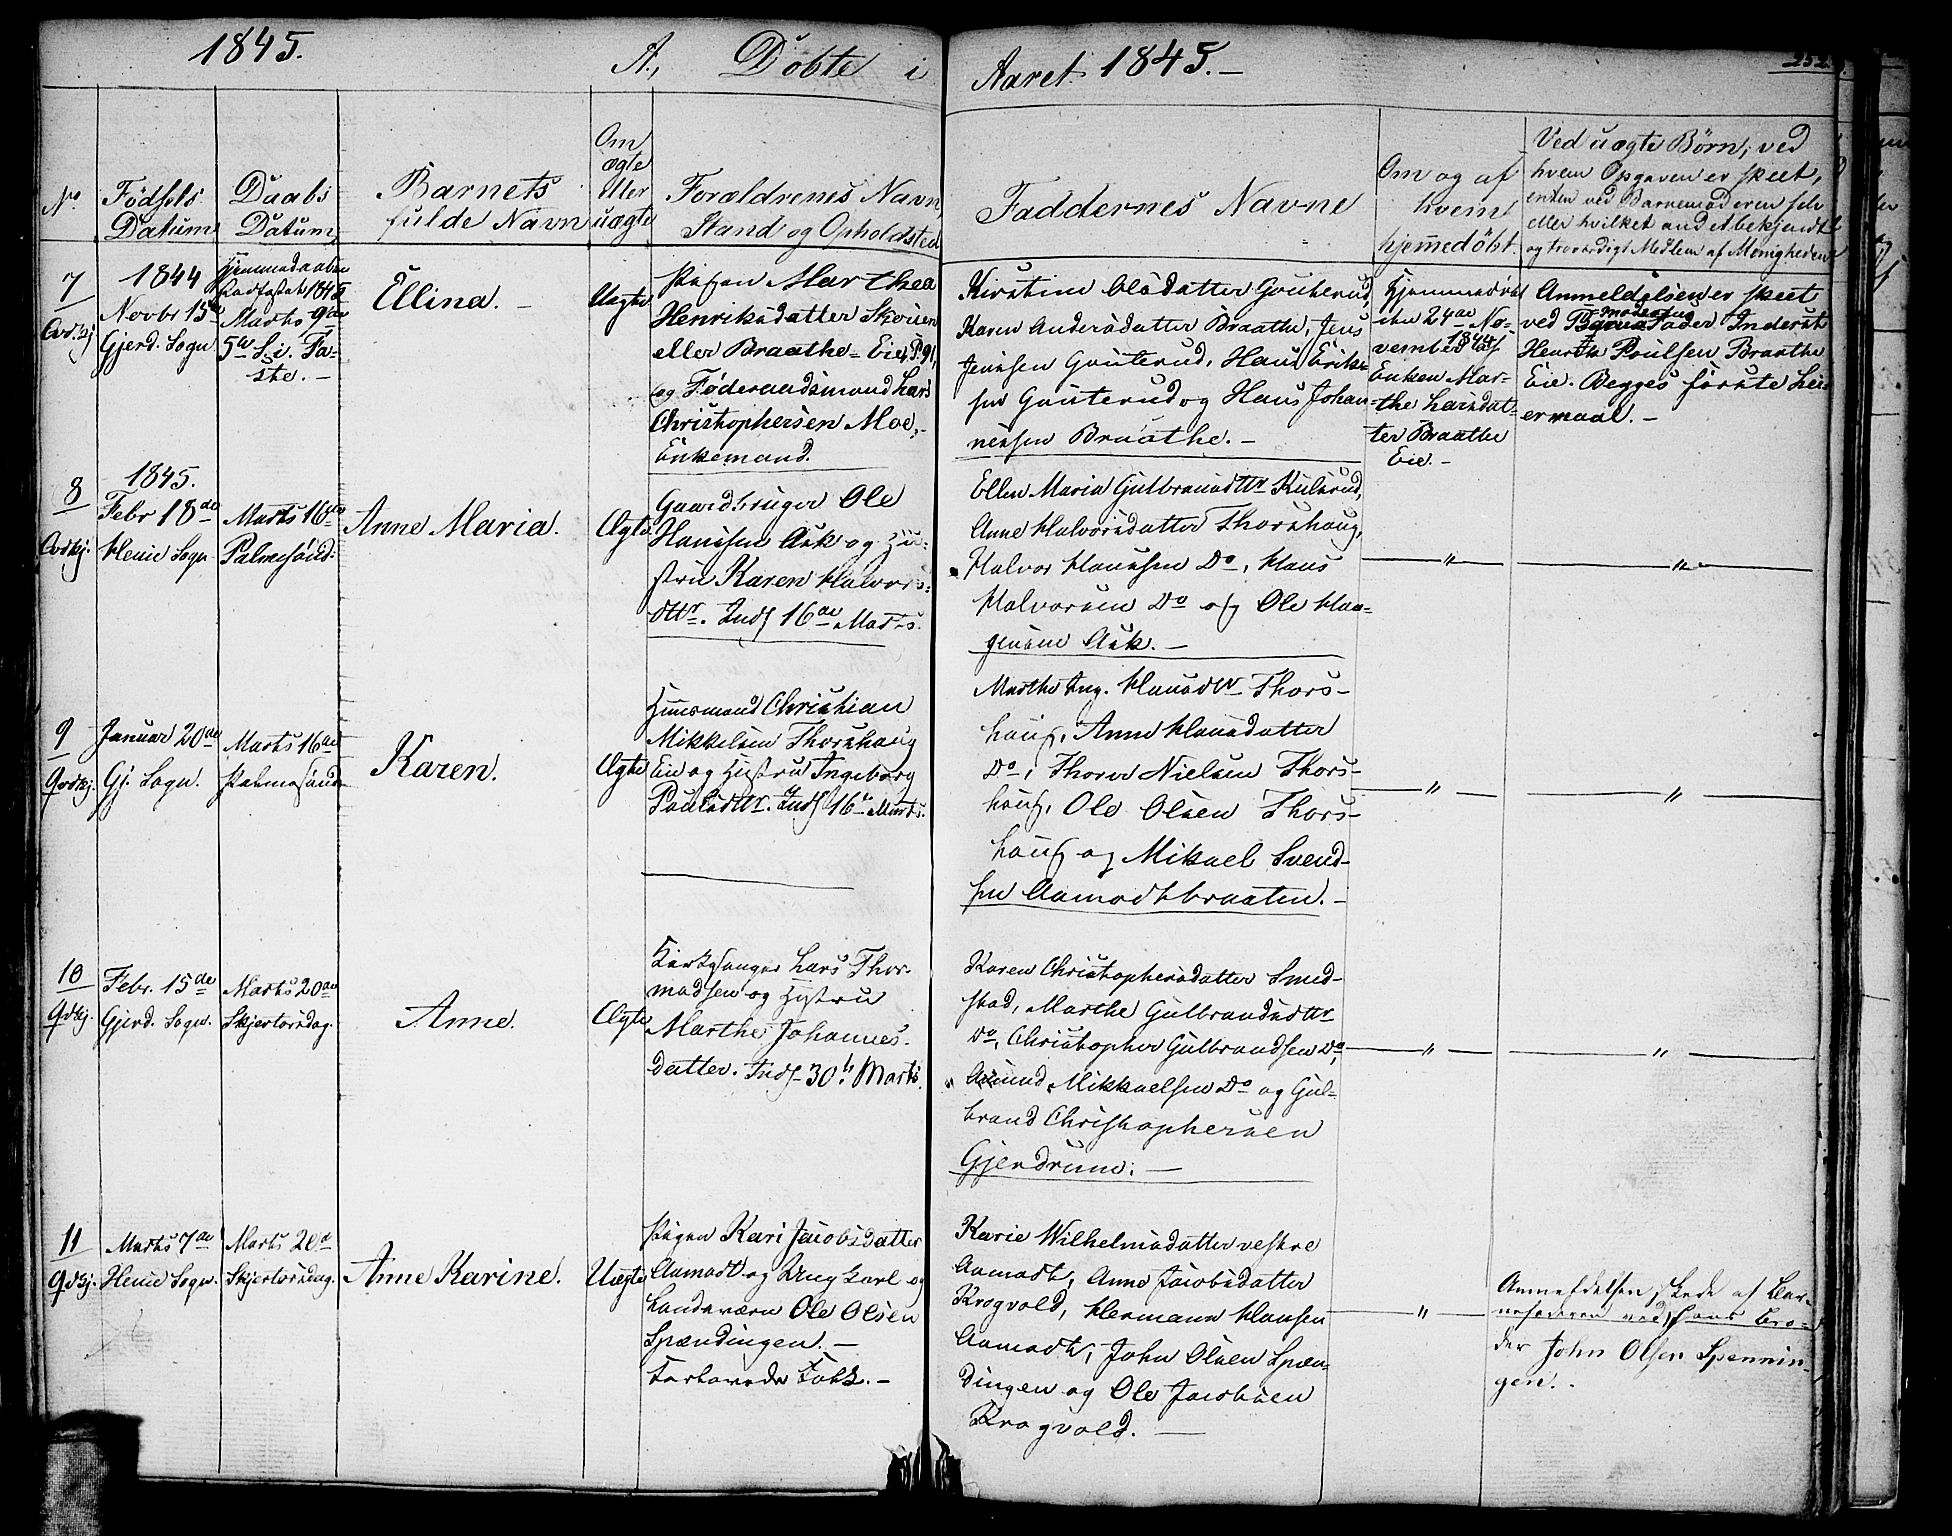 1845.
A., Döbte i Aaret 1845.–
252.
No
Födsels
Datum
Daabs
Datum
Barnets
fulde Navn
Om
ægte
eller
uægte
Forældrenes Navn,
Stand og Opholdsted
Faddernes Navne
Om og af
hvem
hjemmedöbt.
Ved uægte Børn, ved
hvem Opgaven er skeet,
enten ved Barnemoderen selv
eller hvilket andet bekjendt
og troværdigt Medlem af Menigheden
7
1844
Novbr 15de
Gjerd. Sogn
Hjemmedaaben
stadfæstet 1845
Marts 9de
5te S. i. Fa-
ste.–
Ellina.–
Uægte
Pigen Marthea
Henriksdatter Skouen
eller Braathe-Eie,
og Föderaadsmand Lars
Christophersen Moe,–
Enkemand.
Kirstine Olsdatter Gouterud,
Karen Andersdatter Braathe, Jens
Jensen Gouterud, Hans Erik-
sen Gouterud og Hans Johan-
nessen Braathe.–
Hjemmedöbt
den 24de No-
vember 1844 af
Enken Mar-
the Larsdat-
ter Braathe
Eie.–
Anmeldelsen er skeet
ved Moderens Fader Inderst
Henrik Poulsen Braathe
Eie. Begges förste Lei-
ermaal.–
8
1845.
Febr 18de
Heni Sogn
Marts 16de
Palmesönd.
Anne Maria.
Ægte
Gaardbruger Ole
Hansen Ask og Hu-
stru Karen Halvors-
dttr. Inds 16de Marts.
Ellen Maria Gulbrandsdttr Kulsrud,
Anne Halvorsdatter Thorshaug,
Halvor Hansen Do, Hans
Halvorsen Do og Ole Haa-
gensen Ask.–
〃
〃
9
Januar 20de
Gj. Sogn.
Marts 16de
Palmesönd.
Karen.
Ægte
Huusmand Christian
Mikkelsen Thorshaug
Eie og Hustru Ingeborg
Poulsdttr. Inds 16de Marts.
Marthe Ing. Hansdttr Thors-
haug, Anne Hansdatter
Do, Thorer Nielsen Thors-
haug, Ole Olsen Thors-
haug og Mikael Svend-
sen Aamodtbraaten.–
〃
〃
10
Febr. 15de
Gjerd. Sogn.
Marts 20de
Skjertorsdag.
Anne.
Ægte
Kirkesanger Lars Thor-
madsen og Hustru
Marthe Johannes-
datter. Inds 30te Marts.
Karen Christophersdatter Smed-
stad, Marthe Gulbrandsdttr
Do, Christopher Gulbrandsen Do,
Amund Mikkaelsen Do og Gul-
brand Christophersen
Gjerdrum.–
〃
〃
11
Marts 7de
Heni Sogn.
Marts 20de
Skjertorsdag.
Anne Karine.
Uægte
Pigen Kari Jacobsdatter
Aamodt og Ungkarl og
Landeværn Ole Olsen
Spændingen.–
Forlovede Folk.–
Karie Wilhelmsdatter vestre
Aamodt, Anne Jacobsdatter
Krogvold, Hermann Hansen
Aamodt, John Olsen Spæn-
dingen og Ole Jacobsen
Krogvold.–
〃
Anmeldelsen skede af Bar-
nefaderen ved hans Bro-
der John Olsen Spennin-
gen.–